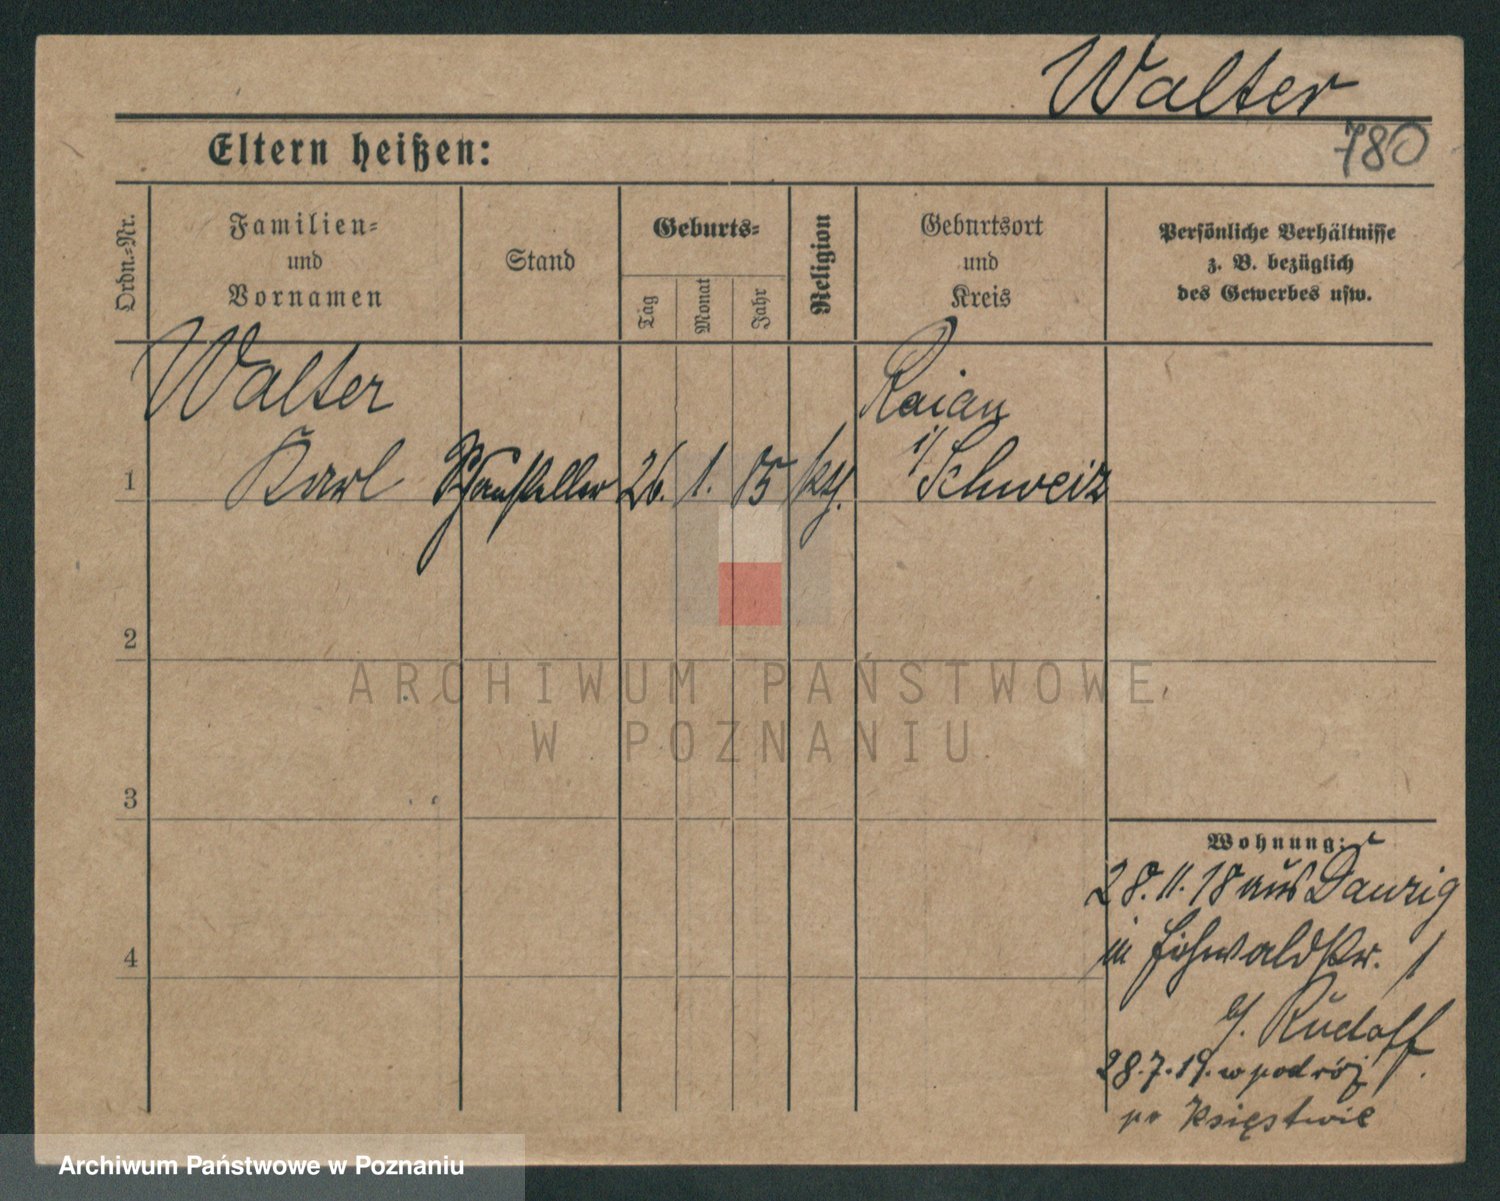 Walter
780
Eltern heißen:
Ordn.-Nr.
Familien=
und
Vornamen
Stand
Geburts=
Tag
Monat
Jahr
Religion
Geburtsort
und
Kreis
Persönliche Verhältnisse
z. B. bezüglich
des Gewerbes usw.
Walter
Karl
Schausteller
26. 1. 85
kth.
i/ Schweiz
1
2
3
4
ARCHIWUM PAŃSTWOWE
W POZNANIU
Wohnung:
28.11.18 aus Danzig
in
b/. Rudolf
28.7.19. w podróż
po Księstwie
Archiwum Państwowe w Poznaniu